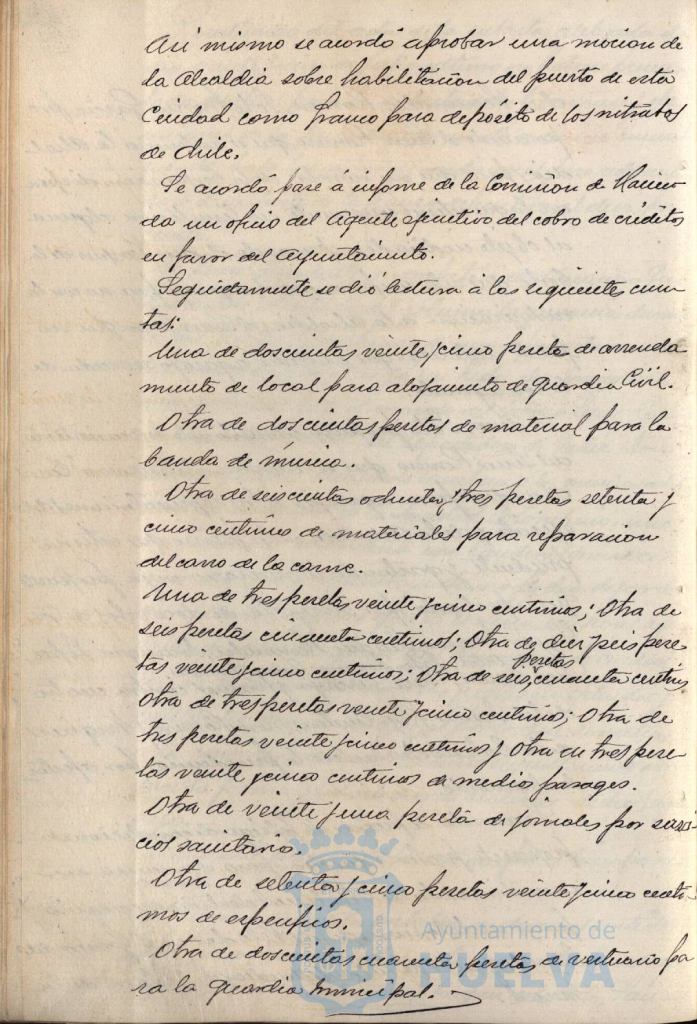 Asi mismo se acordó aprobar una mocion de
la Alcaldia sobre habilitacion del puerto de esta
Ciudad como franco para depósito de los nitratos
de Chile.
Se acordó pase á informe de la Comision de Hacien
da un oficio del Agente ejecutivo del cobro de créditos
en favor del Ayuntamiento.
Seguidamente se dió lectura á las siguientes cuen
tas:
Una de doscientas veinte y cinco pesetas de arrenda
miento de local para alojamiento de Guardia Civil.
Otra de doscientas pesetas de material para la
banda de música.
Otra de seiscientas ochenta y tres pesetas setenta y
cinco centimos de materiales para reparacion
del carro de la carne.
Una de tres pesetas veinte y cinco centimos; Otra de
seis pesetas cincuenta centimos; Otra de diez y seis pese-
tas veinte y cinco centimos; Otra de seis pesetas cincuenta centims
Otra de tres pesetas veinte y cinco centimos; Otra de
tres pesetas veinte y cinco centimos y Otra de tres pese-
tas veinte y cinco centimos de medios pasages.
Otra de veinte y una peseta de jornales por servi-
cios sanitarios.
Otra de setenta y cinco pesetas veinte y cinco centi-
mos de especificos.
Otra de doscientas cuarenta pesetas de vestuario pa
ra la Guardia Municipal.
Ayuntamiento de
HUELVA